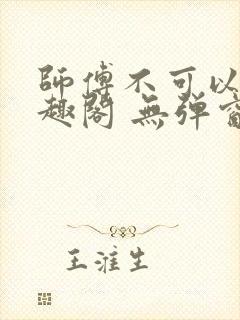 師傅不可以
趣閣 無彈窗
王淮生